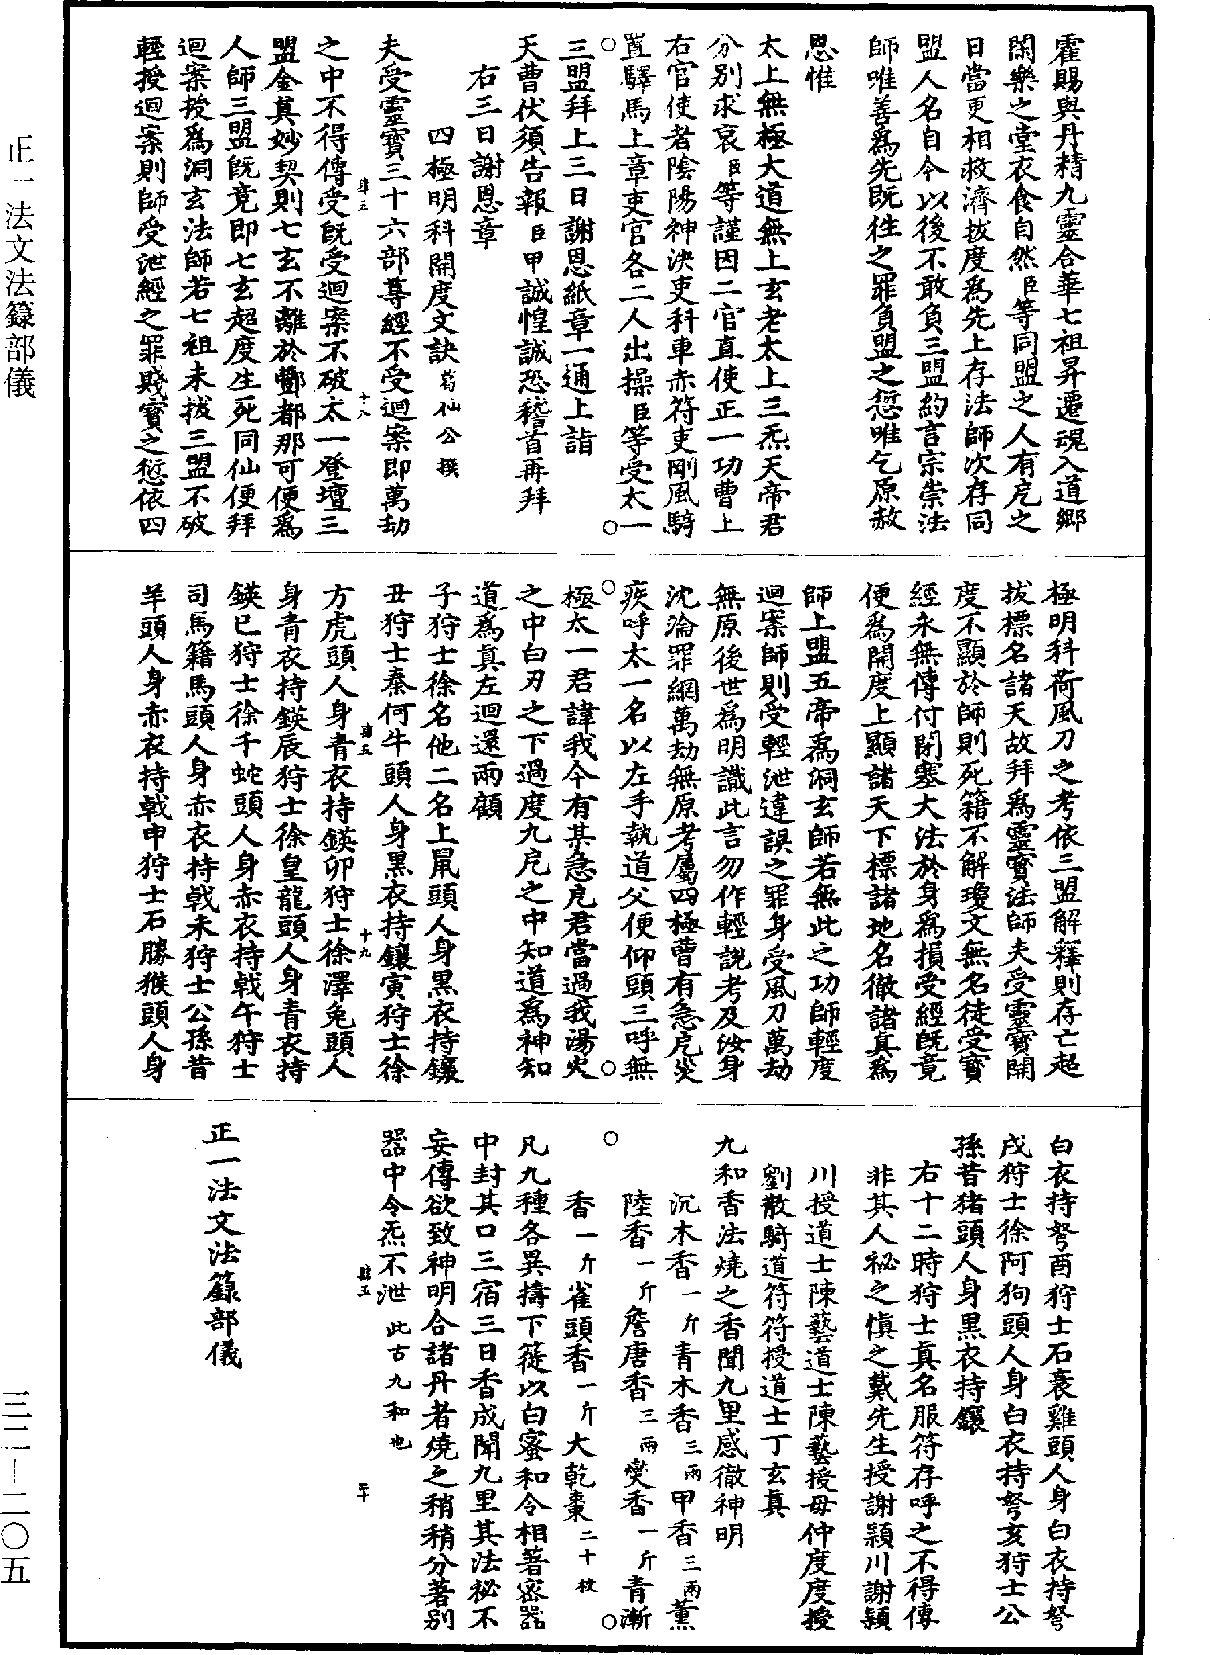 霍賜與丹精九靈合華七祖昇遷魂入道鄉
閑樂之堂衣食自然臣等同盟之人有戹之
日當更相救濟拔度為先上存法師次存同
盟人名自今以後不敢負三盟約言宗崇法
師唯善為先既往之罪負盟之愆唯乞原赦
恩惟
太上無極大道無上玄老太上三炁天帝君
分別求哀臣等謹因二官直使正一功曹上
右官使者陰陽神決吏科車赤符吏剛風騎
置驛馬上章吏官各二人出操臣等受太一
三盟拜上三日謝恩紙章一通上詣
天曹伏須告報臣甲誠惶誠恐稽首再拜
右三日謝恩章
四極明科開度文訣葛仙公撰
夫受靈寶三十六部尊經不受迴案即萬劫
肆五 十八
之中不得傳受既受迴案不破太一登壇三
盟金真妙契則七玄不離於酆都那可便為
人師三盟既竟即七玄超度生死同仙便拜
迴案授為洞玄法師若七祖未拔三盟不破
輕授迴案則師受泄經之罪賤寶之愆依四
極明科荷風刀之考依三盟解釋則存亡超
拔標名諸天故拜為靈寶法師夫受靈寶開
度不顯於師則死籍不解瓊文無名徒受寶
經永無傳付閉塞大法於身為損受經既竟
便為開度上顯諸天下標諸地名徹諸真為
師上盟五帝為洞玄師若無此之功師輕度
迴案師則受輕泄違誤之罪身受風刀萬劫
無原後世為明識此言勿作輕說考及汝身
沈淪罪網萬劫無原考屬四極曹有急戹災
疾呼太一名以左手執道父便仰頭三呼無
極太一君諱我今有某急戹君當過我湯火
之中白刃之下過度九戹之中知道為神知
道為真左迴還兩顧
子狩士徐名他二名上鼠頭人身黑衣持鑲
丑狩士秦何牛頭人身黑衣持鑲寅狩士徐
肆五 十九
方虎頭人身青衣持鍈卯狩士徐澤兔頭人
身青衣持鍈辰狩士徐皇龍頭人身青衣持
鍈巳狩士徐千蛇頭人身赤衣持戟午狩士
司馬籍馬頭人身赤衣持戟未狩士公孫昔
羊頭人身赤衣持戟申狩士石勝猴頭人身
白衣持弩酉狩士石衰雞頭人身白衣持弩
戌狩士徐阿狗頭人身白衣持弩亥狩士公
孫昔猪頭人身黑衣持鑲
右十二時狩士真名服符存呼之不得傳
非其人祕之慎之戴先生授謝穎川謝穎
川授道士陳藝道士陳藝授毋仲度度授
劉散騎道符符授道士丁玄真
九和香法燒之香聞九里感徹神明
沉木香一斤青木香三兩甲香三兩薰
陸香一斤詹唐香三兩㷸香一斤青漸
香一斤雀頭香一斤大乾棗二十枚
凡九種各異擣下簁以白蜜和令相著密器
中封其口三宿三日香成聞九里其法祕不
妄傳欲致神明合諸丹者燒之稍稍分著別
器中令炁不泄此古九和也
肆五 二十
正一法文法籙部儀
正一法文法籙部儀
三二—二〇五